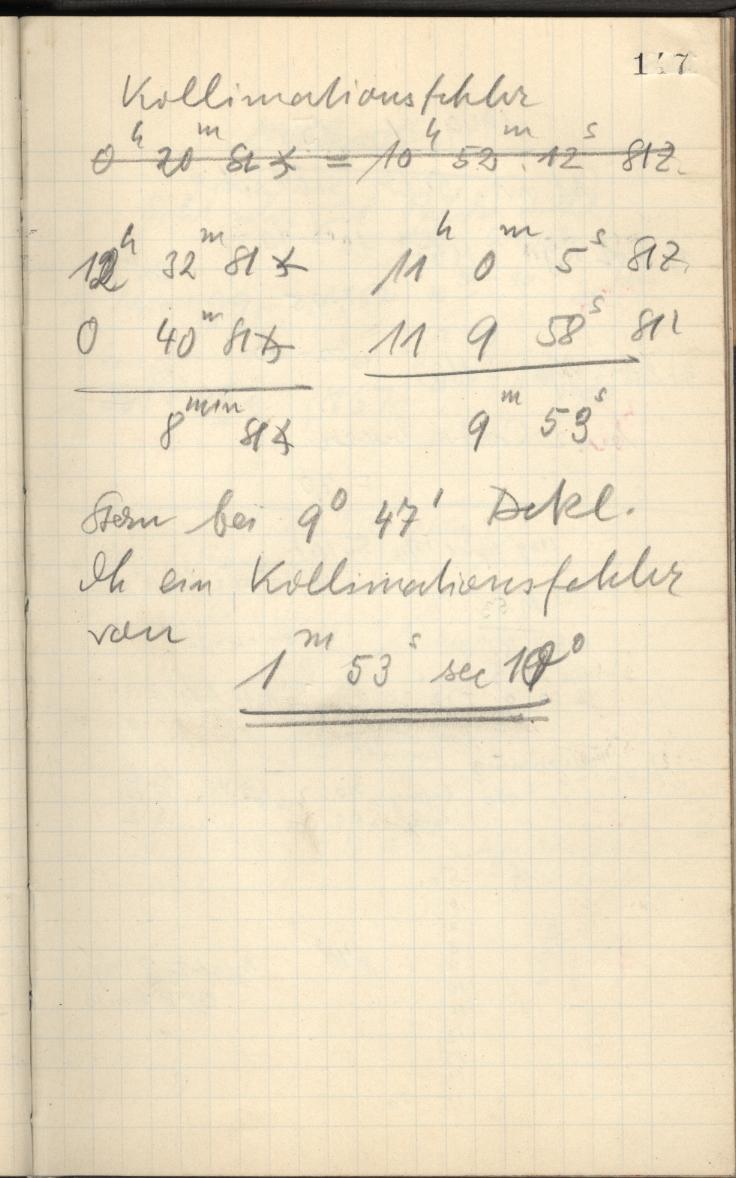 147
Kollimationsfehler
0h 20m StZ = 10h 52m 12s StZ.
12h 32m StZ 11h 0m 5s StZ
0 40m StZ 11 9 58s StZ
8min StZ 9m 53s
Stern bei 9° 47' Dekl.
Ist ein Kollimationsfehler
von
1m 53s sec 10°